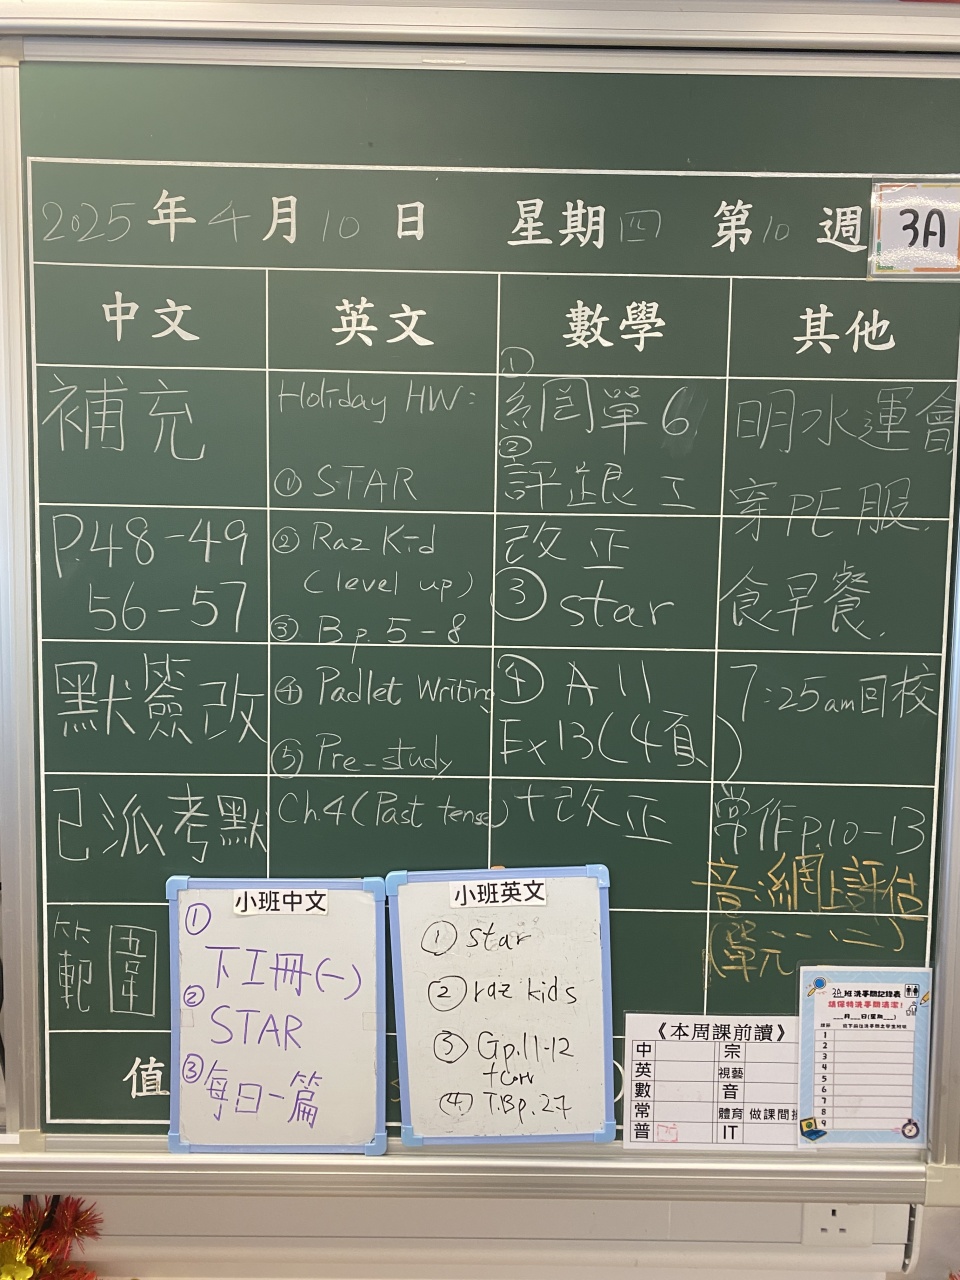 2025年4月10日 星期四 第10週
3A
中文
英文
數學
其他
補充
P.48-49
56-57
默簽改
已派考默
範圍
Holiday HW:
① STAR
② Raz Kid
(level up)
③ B p. 5-8
④ Padlet Writing
⑤ Pre-study
Ch.4 (Past tense)
①
網單6
②
評
改正
③ star
④ A11
Ex13(4頁)
+改正
明水運會
穿PE服.
食早餐.
7:25am回校
常作p.10-13
音:網上評估
(單元一、二)
值
小班中文
①
下工冊(一)
②
STAR
③
每日一篇
小班英文
① star
② raz kids
③ Gp.11-12
+Corr
④ T.Bp.27
《本周課前讀》
中 宗
英 視藝
數 音
常 體育 做課間
普 IT
3A 班洗手間記錄表
請保持洗手間清潔!
__月__日(星期__)
1
2
3
4
5
6
7
8
9